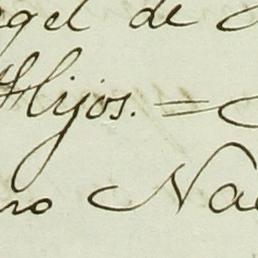 gel de
Hijos. =
no Na